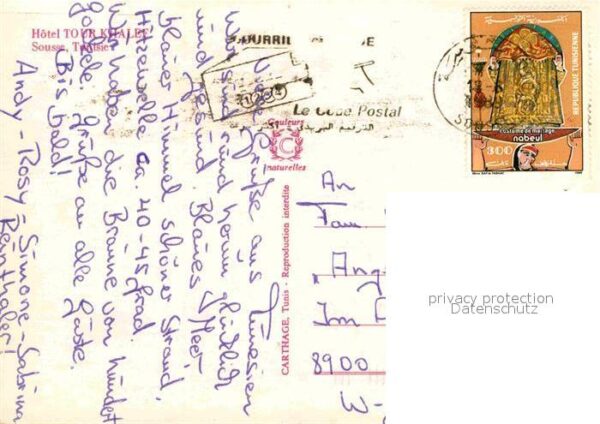 Hôtel TOUR KHALEF
Sousse, Tunisie
Viele Grüße aus Tunesien
Wir sind rund herum glücklich
und gesund. Blaues Meer
blauer Himmel schöner Strand.
Hitzewelle ca. 40-45 Grad.
Wir haben die Bräune von hundert
Grüße an alle Gäste.
Bis bald!
Andy-Rosy-Simone-Sabrina
CARTHAGE, Tunis - Reproduction interdite
Couleurs
C
naturelles
Le Code Postal
الترقيم البريدي
REPUBLIQUE TUNISIENNE
costume de mariage
nabeul
300
An
Fam
"Ang
Im
8900
privacy protection
Datenschutz